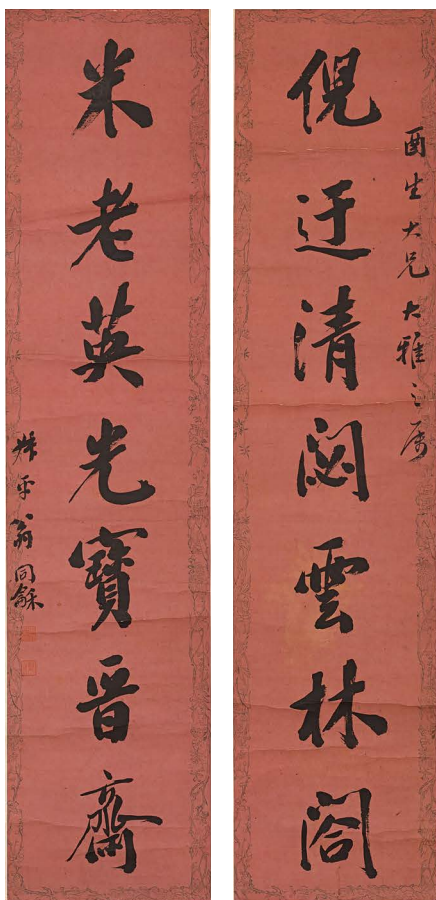 酉生大兄大雅之属
倪迂清閟雲林閣
米老英光寶晋齋
叔平翁同龢